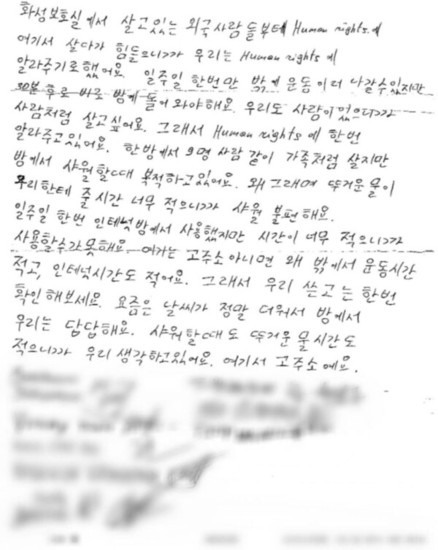 화성보호실에서 살고있는 외국사람들부터 Human rights에
여기서 살다가 힘들으니까 우리는 Human rights에
알라주기로했어요. 일주일 한번만 밖에 운동이더 나갈수있지만
30분 후로 바로 방에 돌어와야해요. 우리도 사람이 있으니까
사람처럼 살고싶어요. 그래서 Human rights에 한번
알라주고있어요. 한방에서 9명 사람 같이 가족처럼 살지만
방에서 샤워할때 복적하고있어요. 왜그래면 뜨거운물이
우리한테 줄시간 너무 적으니까 샤워 불편해요.
일주일 한번 인테넛방에서 사용했지만 시간이 너무 적으니까
사용할수가못해요. 여기는 고주소아니면 왜 밖에서 운동시간
적고, 인터넛시간도 적어요. 그래서 우리 쓴고는 한번
확인해보세요. 요즘은 날씨가 정말 더워서 방에서
우리는 답답해요. 샤워할때도 뜨거운물시간도
적으니까 우리생각하고있어요. 여기서 고주소에요.